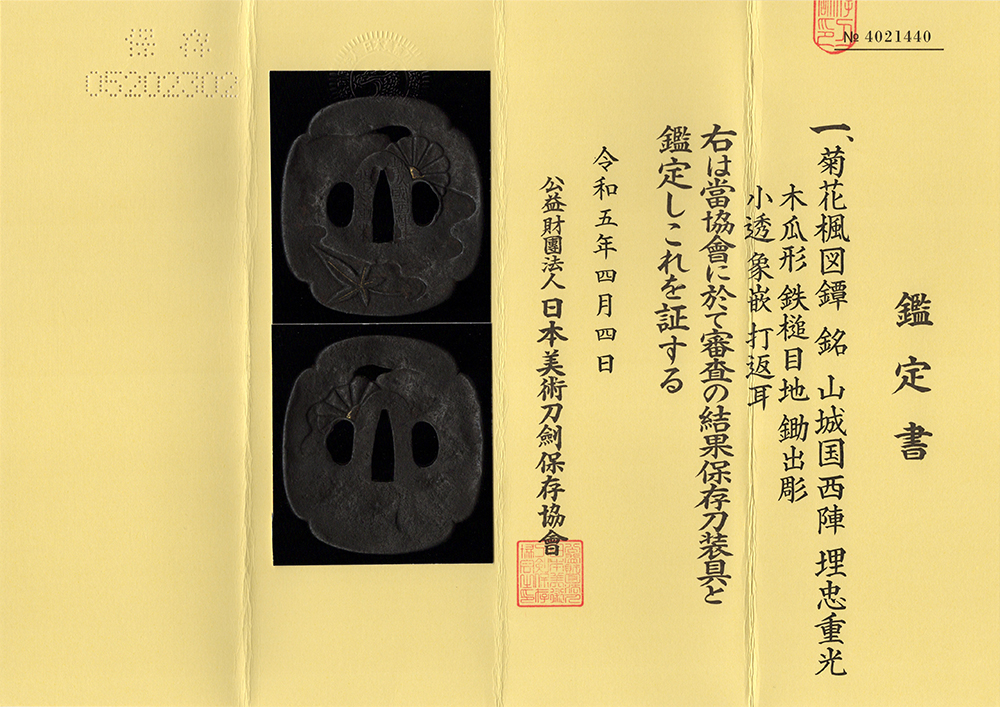 № 4021440
鑑定書
一、菊花楓図鐔 銘 山城国西陣 埋忠重光
木瓜形 鉄槌目地 鋤出彫
小透 象嵌 打返耳
右は當協會に於て審査の結果保存刀装具と
鑑定しこれを証する
令和五年四月四日
公益財團法人 日本美術刀劍保存協會
保存
05202302